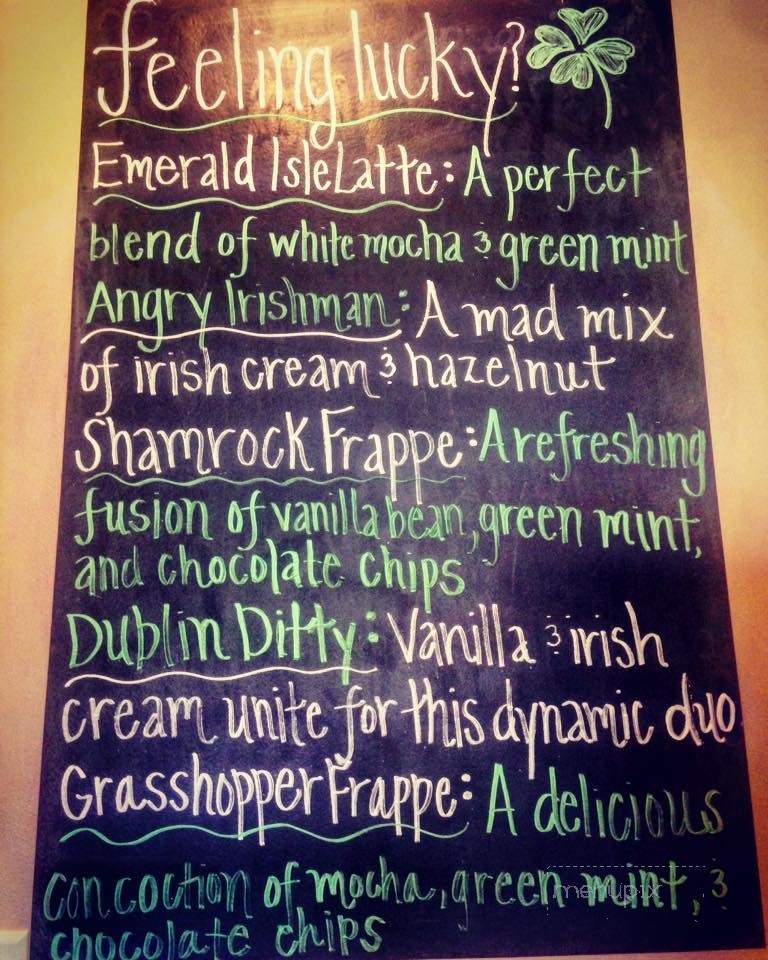 feeling lucky?
Emerald Isle Latte: A perfect
blend of white mocha & green mint
Angry Irishman: A mad mix
of irish cream & hazelnut
Shamrock Frappe: A refreshing
fusion of vanilla bean, green mint,
and chocolate chips
Dublin Ditty: Vanilla & irish
cream unite for this dynamic duo
Grasshopper Frappe: A delicious
concoction of mocha, green mint, &
menupix
chocolate chips